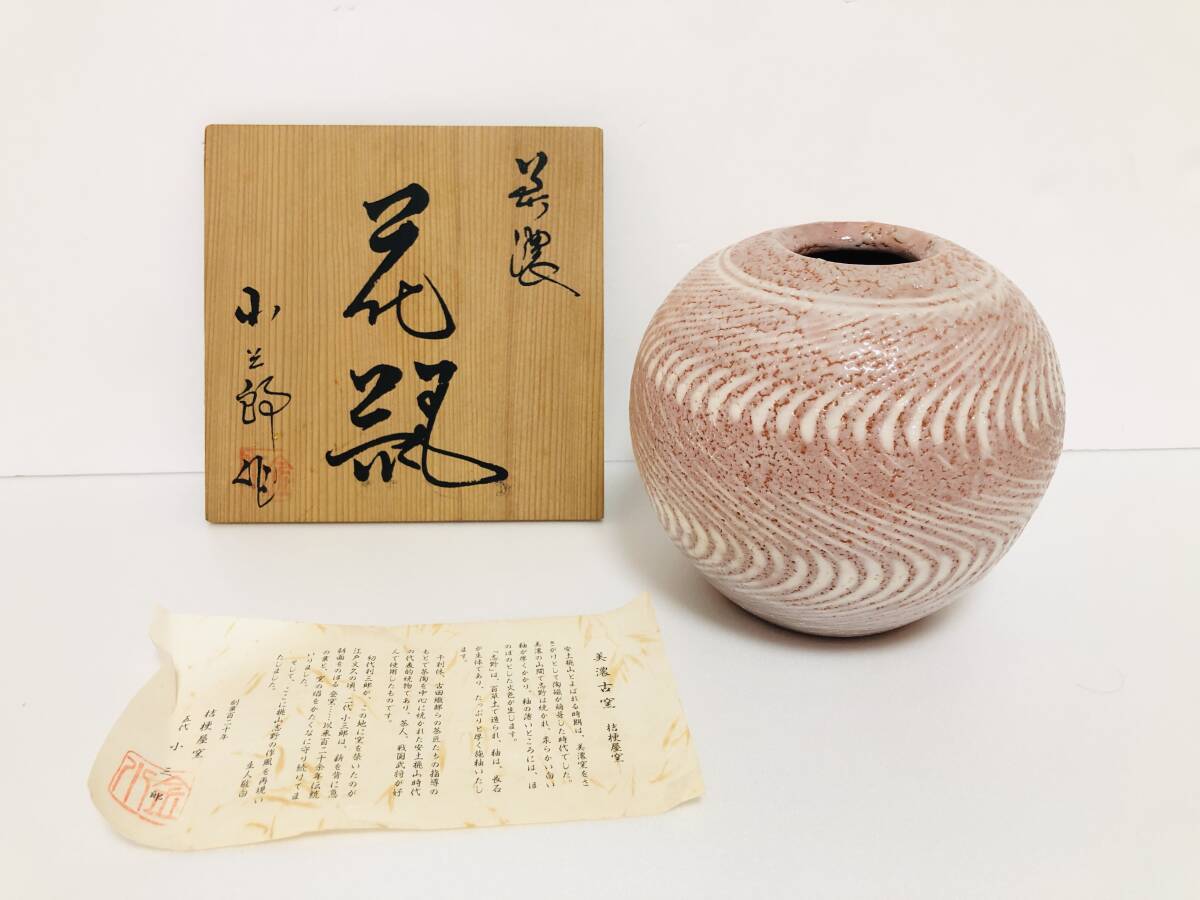 美濃
花瓶
小三郎作
美濃古窯 桔梗屋窯
安土桃山とよばれる時期は、美濃窯をさ
きがけとして陶磁が開花した時代でした。
美濃の山間で志野は焼かれ、柔らかい白い
釉が厚くかかり、釉の薄いところには、ほ
のぼのとした火色が生じます。
「志野」は、百草土で造られ、釉は、長石
が主体であり、たっぷりと厚く施釉いたし
ます。
千利休、古田織部らの茶匠たちの指導の
もとで茶陶を中心に焼かれた安土桃山時代
の代表的焼物であり、茶人、戦国武将が好
んで使用したものです。
初代利三郎が、この地に窯を築いたのが
江戸文久の頃、二代小三郎は、
斜面をのぼる登窯……以来百二十余年伝統
の業と、窯の焰をかたくなに守り続けてま
いりました。
そして、ここに桃山志野の作風を再現い
たしました。
創業百二十年
桔梗屋窯
五代 小三郎